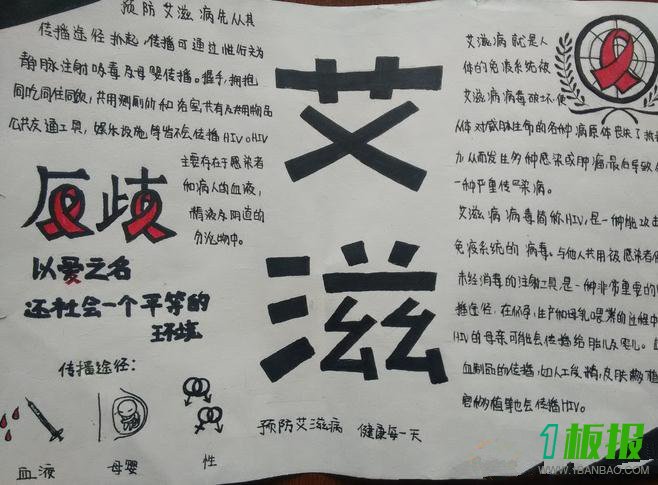 预防艾滋病先从其
传播途径扒起,传播可通过性行为
静脉注射吸毒及母婴传播。握手,拥抱
同吃同住同饮,共用厕所和浴室共有及共用物品
以及交通工具,娱乐设施等皆不会传播HIV。HIV
主要存在于感染者
和病人的血液,
精液及阴道的
分泌物中。
反歧
以爱之名
还社会一个平等的
环境
传播途径:
血液
母婴
性
艾
滋
预防艾滋病 健康每一天
艾滋病就是人
体的免疫系统被
艾滋病病毒破坏,使
人体对威胁生命的各种病原体丧失了抵
力从而发生多种感染或肿瘤,最后导致
一种严重传染病。
艾滋病病毒简称HIV,是一种能攻击
免疫系统的病毒。与他人共用被感染者
未经消毒的注射工具,是一种非常重要的
播途径,在怀孕,生产和母乳喂养的过程中
HIV的母亲可能会传播给胎儿及婴儿。
血制品的传播,如人工受精,皮肤移植
器官移植等也会传播HIV.
1板报
WWW.1BANBAO.COM